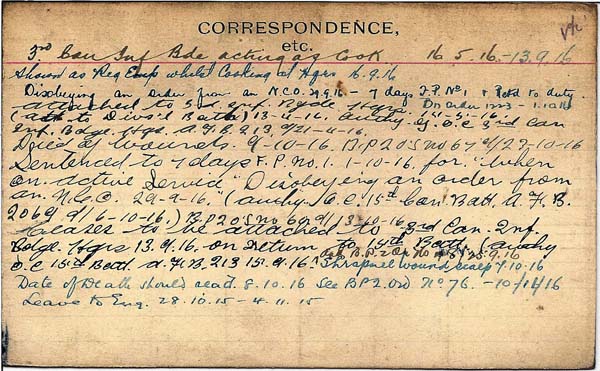 CORRESPONDENCE,
etc.
3rd Can Inf Bde acting as Cook 16.5.16.-13.9.16
Shown as Reg Emp whilst Cooking at Hqrs 16.9.16
Disobeying an order from an N.C.O. 29.9.16 - 7 days F.P. No 1 & Retd to duty.
attached to 3rd Inf. Bgde Hqrs.
(att. to Divs'l Baths) 13-4-16. Authy. G.O.C 3rd Can
Inf. Bdge. Hqs. A.F.B 213 d/21-4-16.
Died of wounds. 9-10-16. B.P2OS no 67 d/23-10-16
Sentenced to 7 days F.P. No. 1. 1-10-16 for "When
on active service" Disobeying an order from
an N.C.O. 29-9-16. (authy O.C. 15th Can. Batt. A.F.B.
2069 d/6-10-16.) B.P2OS no
Ceases to be attached to 3rd Can. Inf.
Bdge. Hqrs 13.9.16. on return to 15th Batt. (authy
O.C 15th Batt A.F.B. 213 15.9.16. Shrapnel wound scalp 7.10.16
Date of Death should read. 8.10.16 see B.P2.Ord No 76. -10/11/16
Leave to Eng. 28.10.15 - 4.11.15